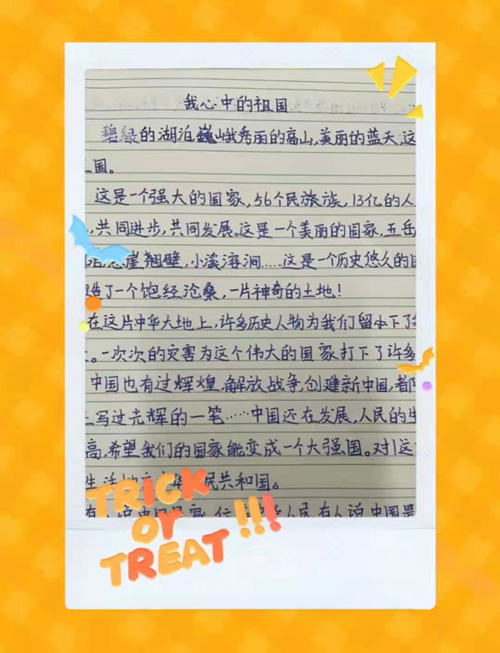 我心中的祖国
碧绿的湖泊,巍峨秀丽的高山,美丽的蓝天,这
国。
这是一个强大的国家,56个民族族,13亿的人
,共同进步,共同发展。这是一个美丽的国家,五岳
悬崖翘壁,小溪海涧……这是一个历史悠久的国
造了一个饱经沧桑,一片神奇的土地!
在这片中华大地上,许多历史人物为我们留下了
。一次次的灾害为这个伟大的国家打下了许多
中国也有过辉煌,解放战争,创建新中国,都
上写过光辉的一笔……中国还在发展,人民的生
高,希望我们的国家能变成一个大强国。对!这
生活 民共和国。
人民,有人说中国是
TRICK
or
TREAT!!!